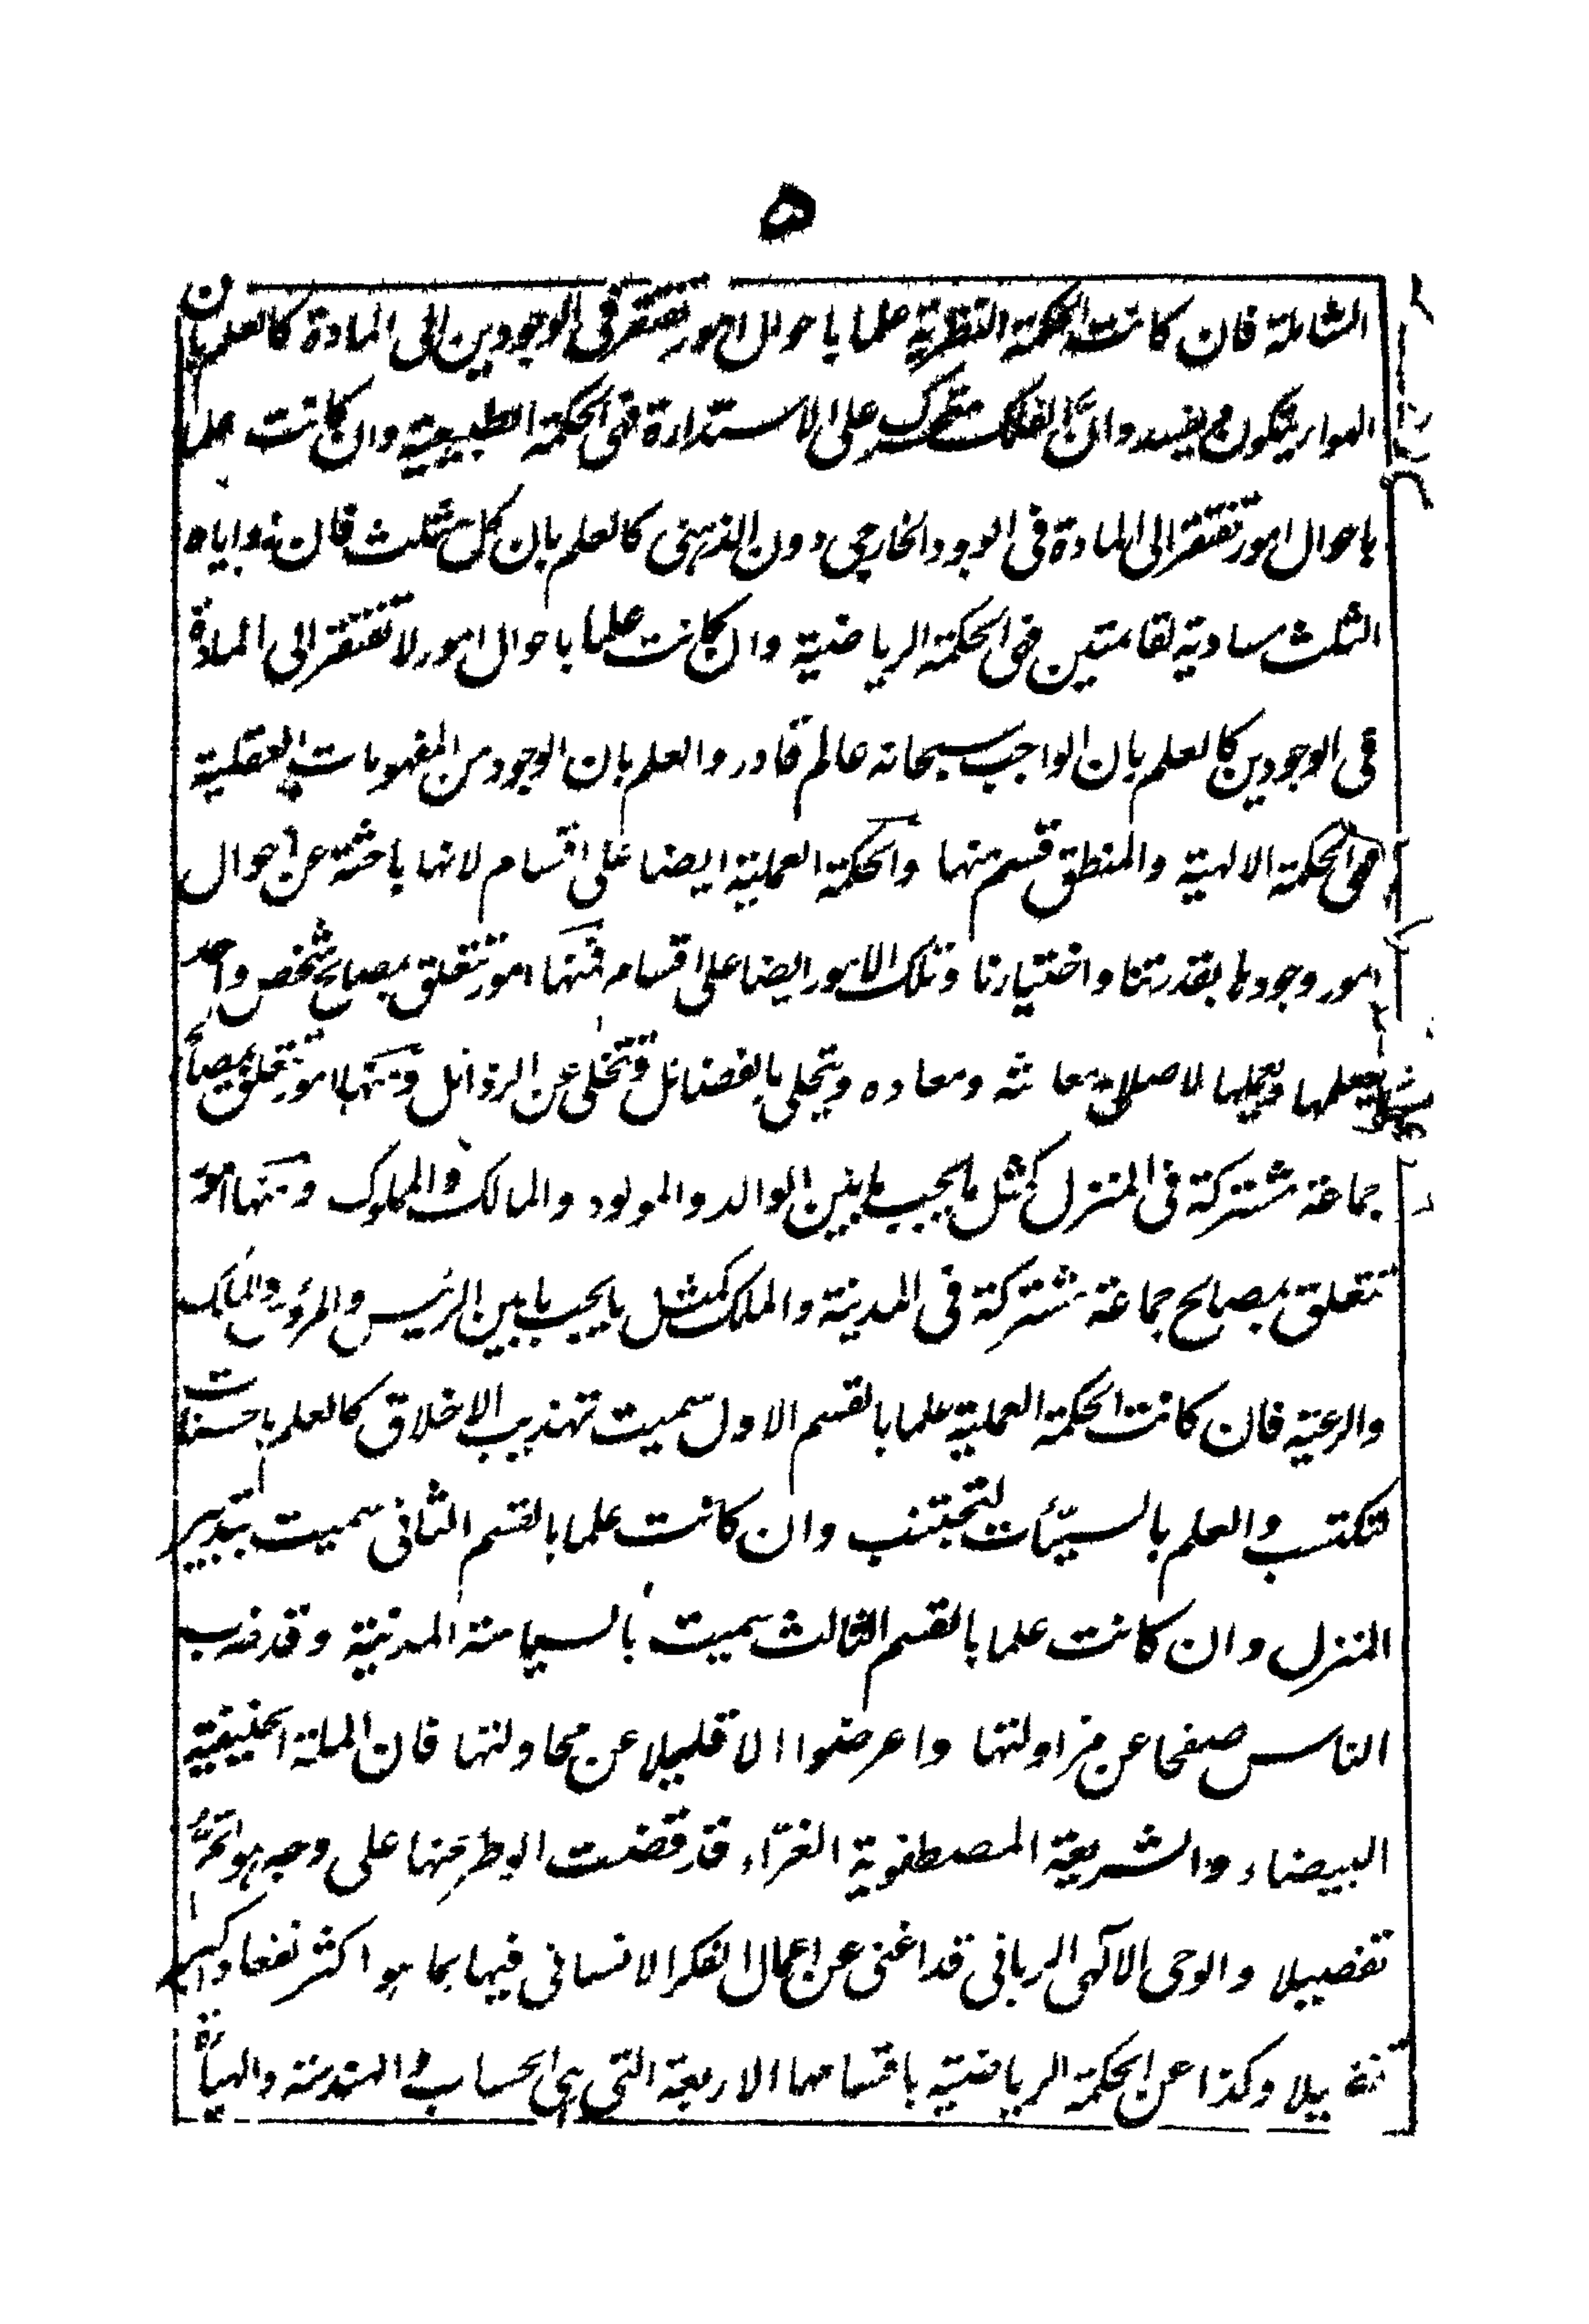 ٥
الشاملة فان كانت الحكمة النظرية علما باحوال امور تفتقر فى الوجودين الى المادة كالعلم بان
الهواء يتكون ويفسد وان الفلك متحرك على الاستدارة فهى الحكمة الطبيعية وان كانت علما
باحوال امور تفتقر الى المادة فى الوجود الخارجى دون الذهنى كالعلم بان كل مثلث فان زواياه
الثلث مساوية لقائمتين فهى الحكمة الرياضية وان كانت علما باحوال امور لا تفتقر الى المادة
فى الوجودين كالعلم بان الواجب سبحانه عالم قادر والعلم بان الوجود من المفهومات العقلية
فهى الحكمة الالهية والمنطق قسم منها والحكمة العملية ايضا على اقسام لانها باحثة عن احوال
امور وجودها بقدرتنا واختيارنا وتلك الامور ايضا على اقسام فمنها امور تتعلق بمصالح شخص واحد
ليعلمها ويعملها لاصلاح معاشه ومعاده ويتحلى بالفضائل ويتخلى عن الرذائل ومنها امور تتعلق بمصالح
جماعة مشتركة فى المنزل كمثل ما يجب ما بين الوالد والمولود والمالك والمملوك ومنها امور
تتعلق بمصالح جماعة مشتركة فى المدينة والملك كمثل ما يجب ما بين الرئيس والمرؤس والملك
والرعية فان كانت الحكمة العملية علما بالقسم الاول سميت تهذيب الاخلاق كالعلم بالحسنات
لتكتسب والعلم بالسيئات لتجتنب وان كانت علما بالقسم الثانى سميت بتدبير
المنزل وان كانت علما بالقسم الثالث سميت بالسياسة المدنية وقد ضرب
الناس صفحا عن مزاولتها واعرضوا الا قليلا عن محاولتها فان الملة الحنيفية
البيضاء والشريعة المصطفوية الغراء قد قضت الوطر عنها على وجه هو اتم
تفصيلا والوحى الآلهى الربانى قد اغنى عن اعمال الفكر الانسانى فيها بما هو اكثر نفعا واكبر
تفصيلا وكذا عن الحكمة الرياضية باقسامها الاربعة التى هى الحساب والهندسة والهيأة